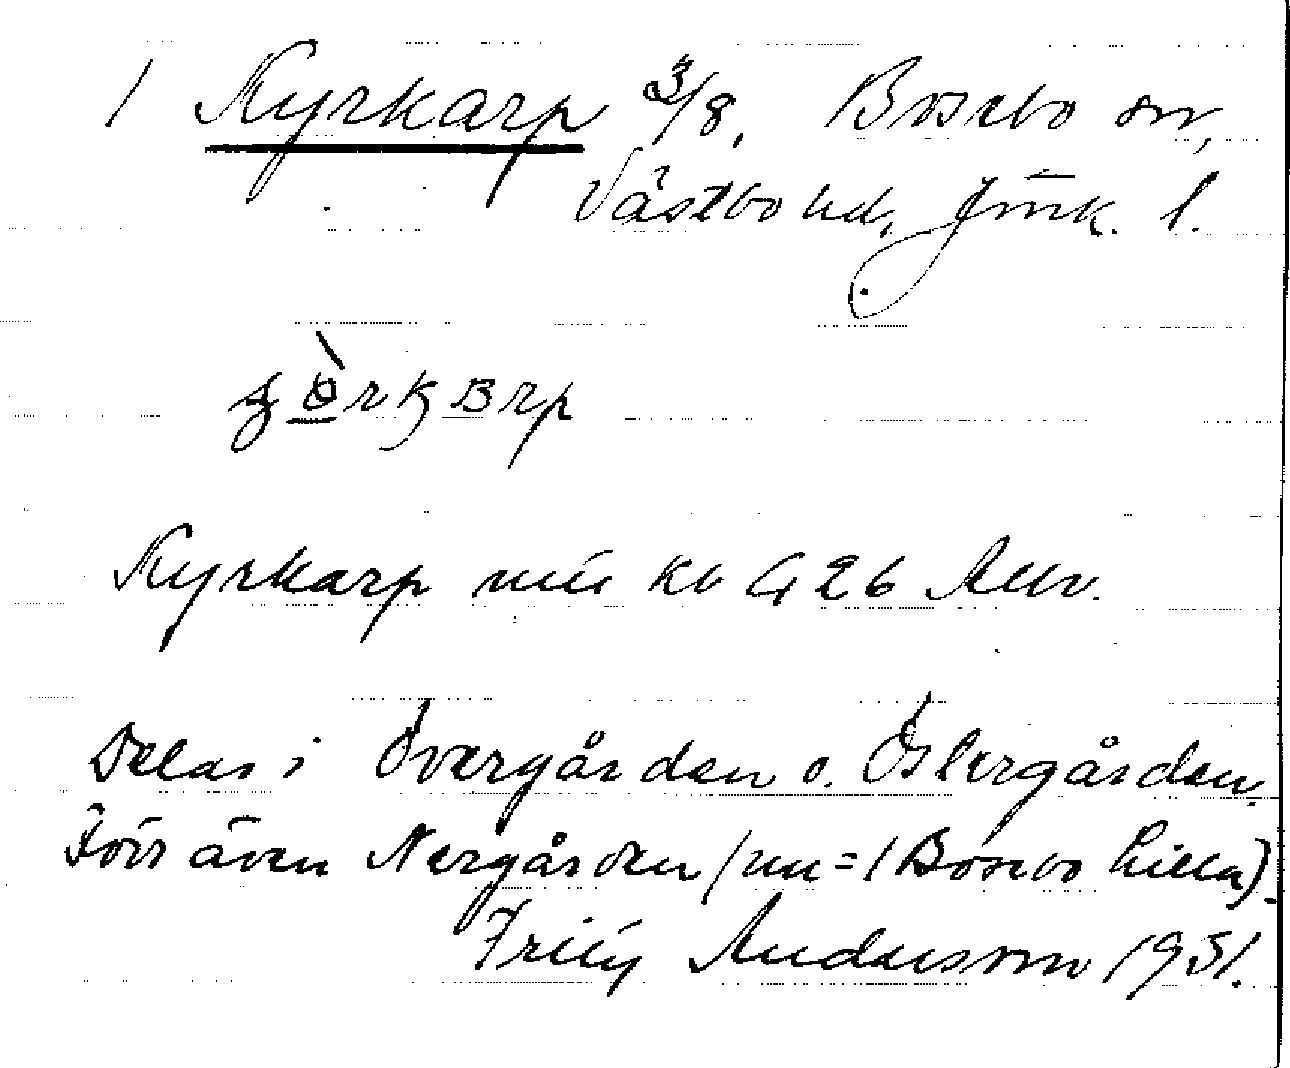 1 Kyrkarp 3/8, Bosebo sn,
Västbo hd, Jmk. l.
Kyrkarp mit kb G 26 Allv.
Delas i Övergården o. Östergården.
Förr även Nergården (nu = 1 Bosebo Lilla).
Fritz Andersson 1951.